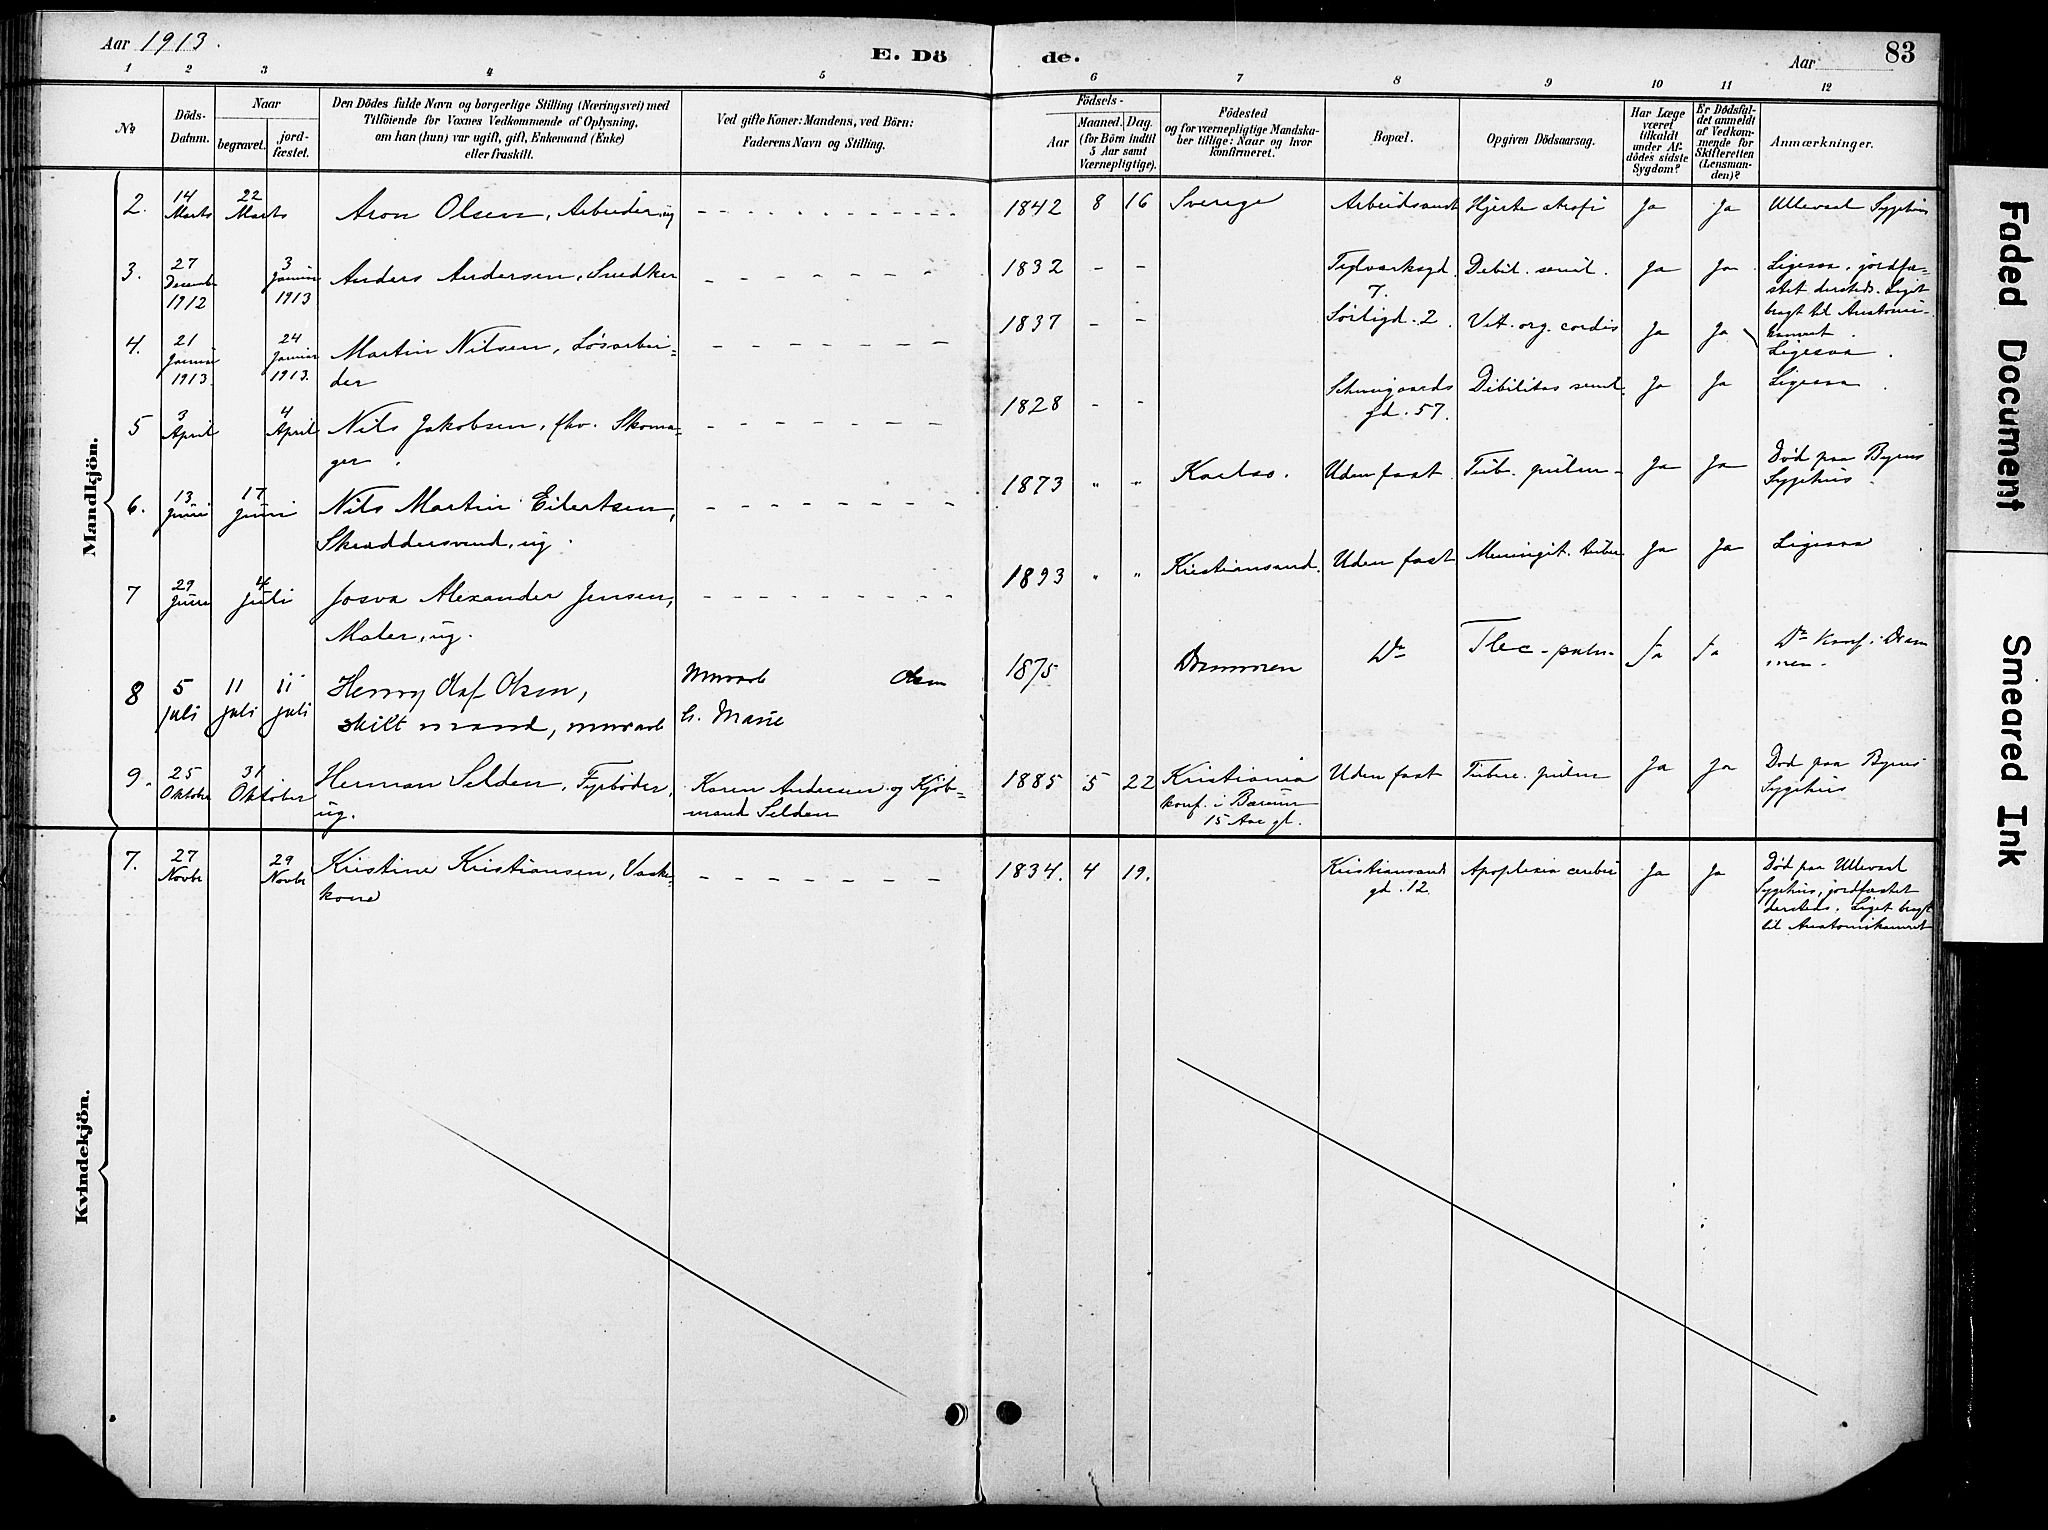 Aar 1913.
E. Dö
de.
Aar
83
1 2 3 4 5 6 7 8 9 10 11 12
No
Döds-
Datum.
Naar
begravet.
jord-
fæstet.
Den Dödes fulde Navn og borgerlige Stilling (Næringsvei) med
Tilföiende for Voxnes Vedkommende af Oplysning,
om han (hun) var ugift, gift, Enkemand (Enke)
eller fraskilt.
Ved gifte Koner: Mandens, ved Börn:
Faderens Navn og Stilling.
Födsels-
Aar
Maaned. Dag.
(for Börn indtil
5 Aar samt
Værnepligtige).
Födested
og for værnepligtige Mandska-
ber tillige: Naar og hvor
konfirmeret.
Bopæl.
Opgiven Dödsaarsag.
Har Læge
været
tilkaldt
under Af-
dödes sidste
Sygdom?
Er Dödsfal-
det anmeldt
af Vedkom-
mende for
Skifteretten
(Lensman-
den)?
Anmærkninger.
Mandkjön.
2. 14 Marts 22 Marts Aron Olsen, Arbeider, ug 1842 8 16 Sverige Hjerte atrofi Ja Ja Ullevaal Sygehus
3. 27 Decemb 1912 3 Januar 1913 Anders Andersen, Snedker 1832 - - Teglverksgd. 7. Debil. senil. Ja Ja Ligesaa, jordfæ-
stet dersteds. Liget
bragt til Anatomi-
kamret.
4. 21 Januar 1913. 24 Januar 1913. Martin Nilsen, Løsarbei-
der 1837 - - Sörligd. 2. Vit. org. cordis Ja Ja Ligesaa.
5 3 April 4 April Nils Jakobsen, fhv. Skoma-
ger. 1828 - - Schweigaards
gd. 57. Debilitas senil. Ja Ja Ligesaa.
6. 13 Juni 17 Juni Nils Martin Eilertsen,
Skræddersvend, ug. 1873 " " Karlsö. Uden fast Tub. pulm. Ja Ja Död paa Byens
Sygehus.
7 29 Juni 4 Juli Josva Alexander Jensen,
Maler, ug. 1893 " " Kristiansand. Uden fast Meningit. tuber. Ja Ja Ligesaa.
8 5 juli 11 juli 11 juli Henry Olaf Olsen,
skilt mand, murarb Murarb Olsen
h. Marie 1875 Drammen Do Tbc. pulm. Ja Ja Do Konf. i Dram
men.
9. 25 Oktober 31 Oktober Herman Selden, Fyrböder,
ug. Karen Andersen og Kjöb-
mand Selden 1885 5 22 Kristiania
konf. i Bærum
15 Aar gl. Uden fast Tuberc. pulm Ja Ja Död paa Byens
Sygehus
Kvindekjön.
7. 27 Novbr 29 Novbr Kristine Kristiansen, Vaske-
kone 1834. 4 19. Kristiansands
gd. 12. Apoplexia cerebri Ja Ja Död paa Ullevaal
Sygehus, jordfæstet
dersteds. Liget bragt
til Anatomikamret
Faded Document
Smeared Ink